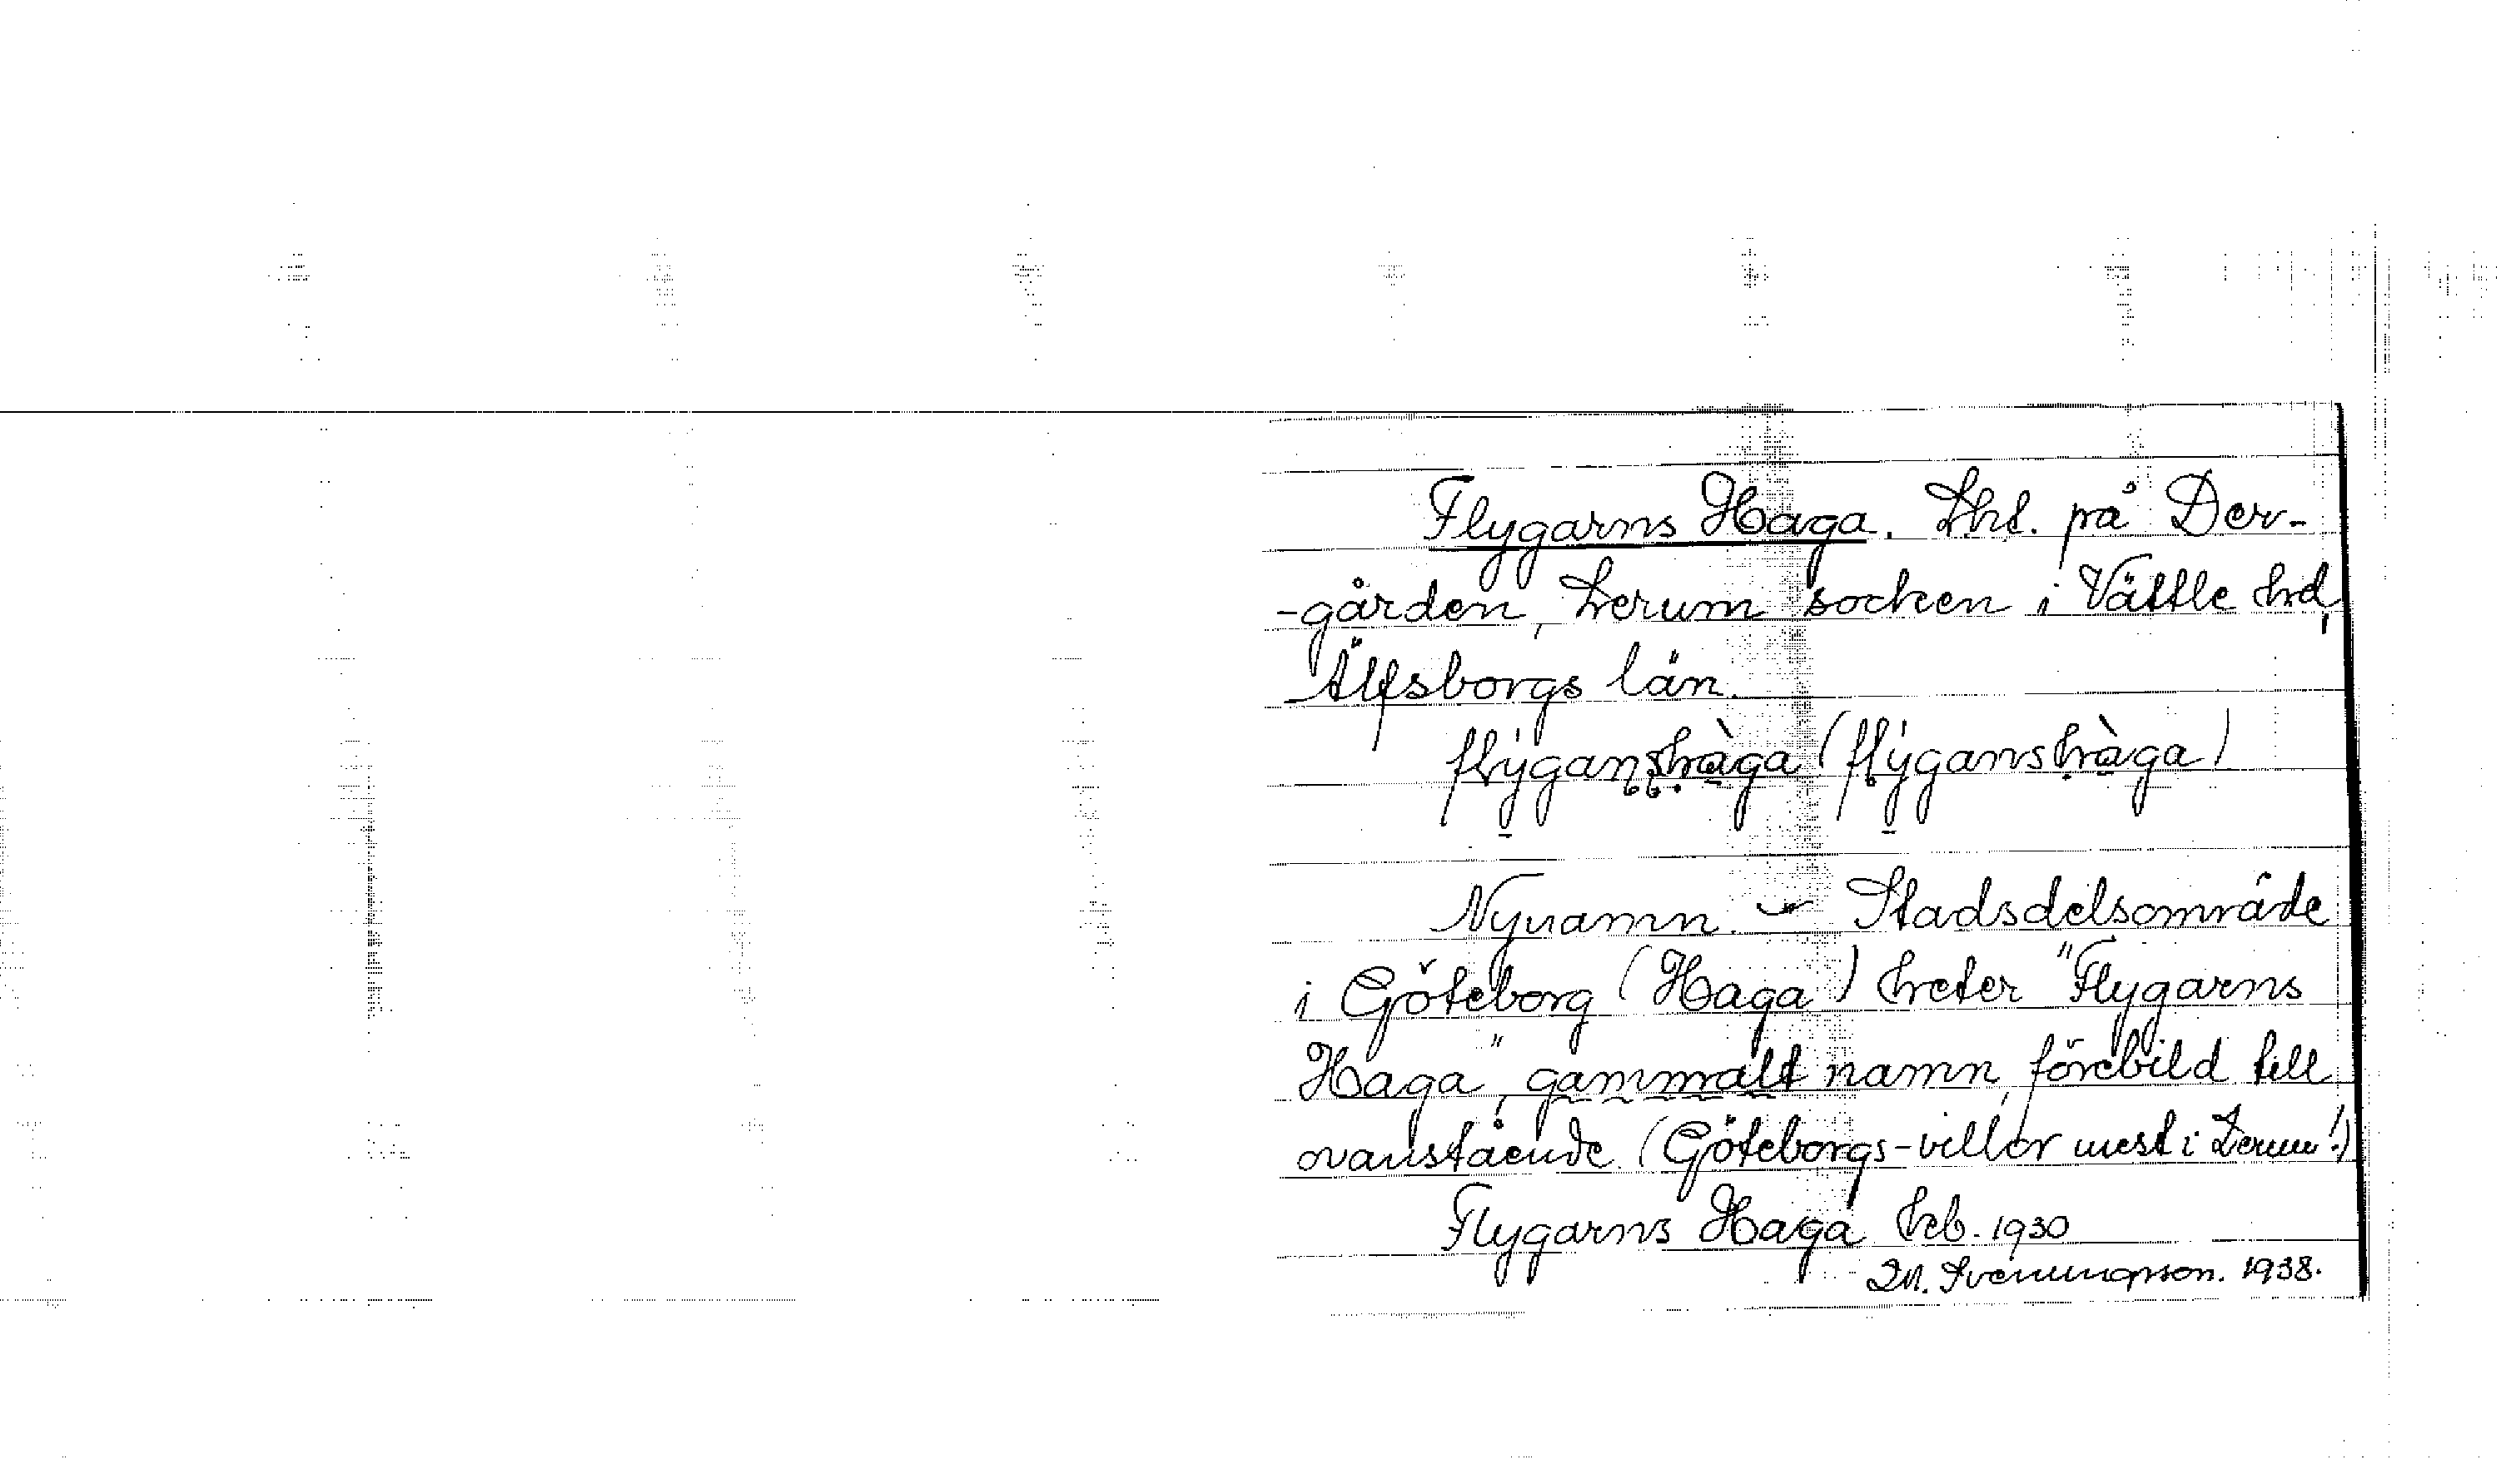 Flygarns Haga. Lht. på Der-
-gården, Lerum socken i Vättle hrd,
Älfsborgs län.
(flýgarnshàga)
Nynamn. – Stadsdelsområde
i Göteborg (Haga) heter "Flygarns
Haga", gammalt namn, förebild till
ovanstående. (Göteborgs-villor mest i Lerum!)
Flygarns Haga beb. 1930
M. Svenungsson. 1938.